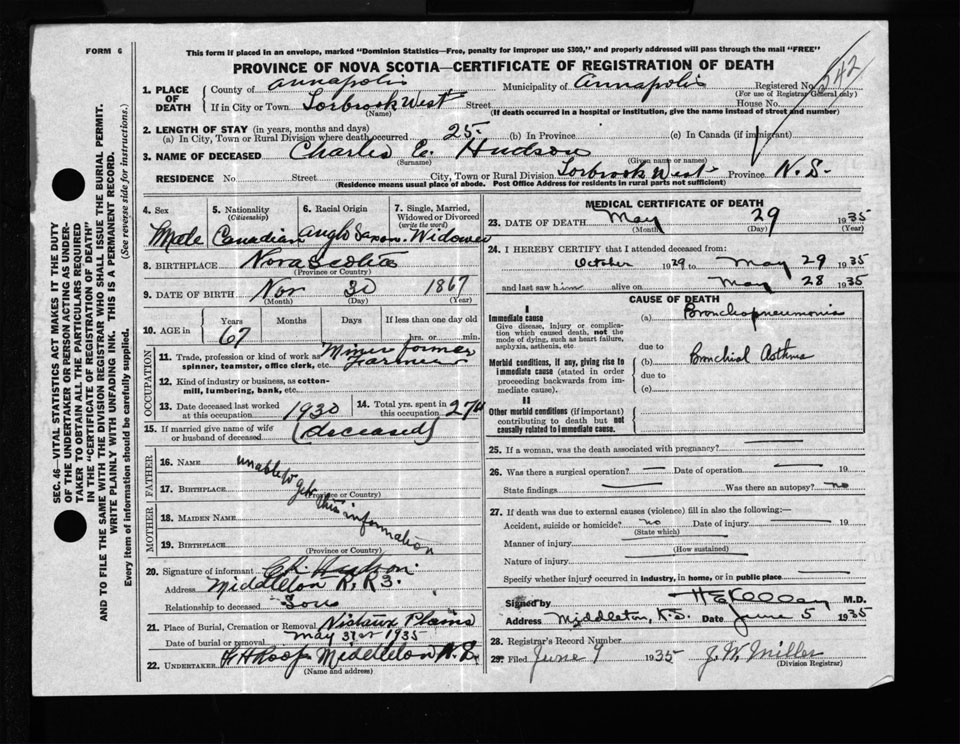 FORM 6
This form if placed in an envelope, marked "Dominion Statistics—Free, penalty for improper use $300," and properly addressed will pass through the mail "FREE"
PROVINCE OF NOVA SCOTIA—CERTIFICATE OF REGISTRATION OF DEATH
1. PLACE OF DEATH
County of Annapolis Municipality of Annapolis Registered No. 542
(For use of Registrar General only)
If in City or Town Torbrook West Street House No.
(Name) (If death occurred in a hospital or institution, give the name instead of street and number)
2. LENGTH OF STAY (in years, months and days)
(a) In City, Town or Rural Division where death occurred 25 (b) In Province (c) In Canada (if immigrant)
3. NAME OF DECEASED Charles E. Hudson
(Surname) (Given name or names)
RESIDENCE No. Street City, Town or Rural Division Torbrook West Province N.S.
(Residence means usual place of abode. Post Office Address for residents in rural parts not sufficient)
4. Sex
Male
5. Nationality
(Citizenship)
Canadian
6. Racial Origin
Anglo Saxon
7. Single, Married, Widowed or Divorced
(write the word)
Widower
8. BIRTHPLACE Nova Scotia
(Province or Country)
9. DATE OF BIRTH Nov 30 1867
(Month) (Day) (Year)
10. AGE in Years Months Days If less than one day old
67 hrs. or min.
OCCUPATION
11. Trade, profession or kind of work as spinner, teamster, office clerk, etc. Miner former Farmer
12. Kind of industry or business, as cotton-mill, lumbering, bank, etc.
13. Date deceased last worked at this occupation 1930
14. Total yrs. spent in this occupation 27
15. If married give name of wife or husband of deceased (deceased)
FATHER
16. NAME
17. BIRTHPLACE
(Province or Country)
MOTHER
18. MAIDEN NAME
19. BIRTHPLACE
(Province or Country)
unable to get this information
20. Signature of informant Hudson
Address Middleton R.R3.
Relationship to deceased Son
21. Place of Burial, Cremation or Removal Nictaux Plains
Date of burial or removal May 31st 1935
22. UNDERTAKER Roop Middleton N.S.
(Name and address)
MEDICAL CERTIFICATE OF DEATH
23. DATE OF DEATH May 29 1935
(Month) (Day) (Year)
24. I HEREBY CERTIFY that I attended deceased from:
October 1929 to May 29 1935
and last saw him alive on May 28 1935
CAUSE OF DEATH
I
Immediate cause
Give disease, injury or complication which caused death, not the mode of dying, such as heart failure, asphyxia, asthenia, etc
(a) Bronchopneumonia
due to
Morbid conditions, if any, giving rise to immediate cause (stated in order proceeding backwards from immediate cause).
(b) Bronchial Asthma
due to
(c)
II
Other morbid conditions (if important) contributing to death but not causally related to immediate cause.
25. If a woman, was the death associated with pregnancy?
26. Was there a surgical operation? — Date of operation — 19
State findings — Was there an autopsy? no
27. If death was due to external causes (violence) fill in also the following:—
Accident, suicide or homicide? no Date of injury — 19
(State which)
Manner of injury
(How sustained)
Nature of injury
Specify whether injury occurred in industry, in home, or in public place
Signed by H E Kelley M.D.
Address Middleton, N.S. Date June 5 1935
28. Registrar's Record Number
29. Filed June 9 1935 J. W. Miller
(Division Registrar)
SEC. 46—VITAL STATISTICS ACT MAKES IT THE DUTY
OF THE UNDERTAKER OR PERSON ACTING AS UNDER-
TAKER TO OBTAIN ALL THE PARTICULARS REQUIRED
IN THE "CERTIFICATE OF REGISTRATION OF DEATH"
AND TO FILE THE SAME WITH THE DIVISION REGISTRAR WHO SHALL ISSUE THE BURIAL PERMIT.
WRITE PLAINLY WITH UNFADING INK. THIS IS A PERMANENT RECORD.
Every item of information should be carefully supplied. (See reverse side for instructions.)